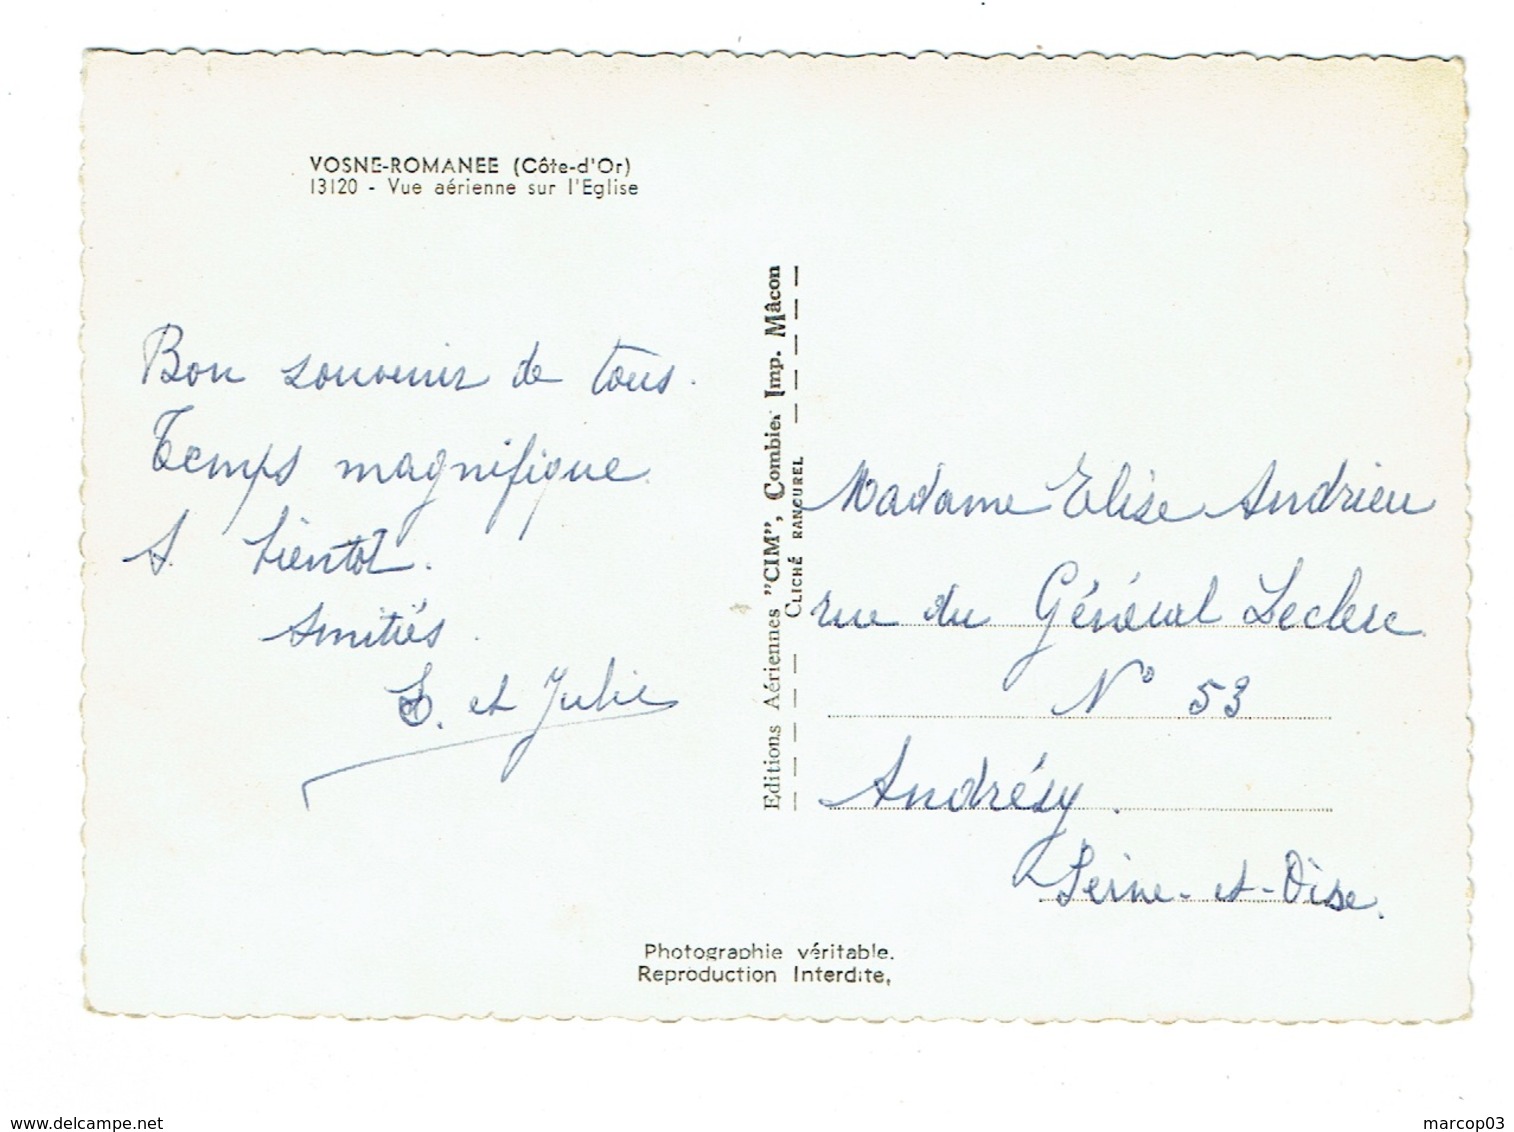 VOSNE-ROMANEE (Côte-d'Or)
13120 - Vue aérienne sur l'Eglise
Bon souvenir de tous.
Temps magnifique.
A bientot.
Amitiés.
et Julie
Editions Aériennes "CIM", Combier Imp. Mâcon
CLICHÉ RANCUREL
Madame Elise Andrieu
rue du Général Leclerc
N° 53
Andrésy.
Seine-et-Oise.
Photographie véritable.
Reproduction Interdite.
www.delcampe.net
marcop03